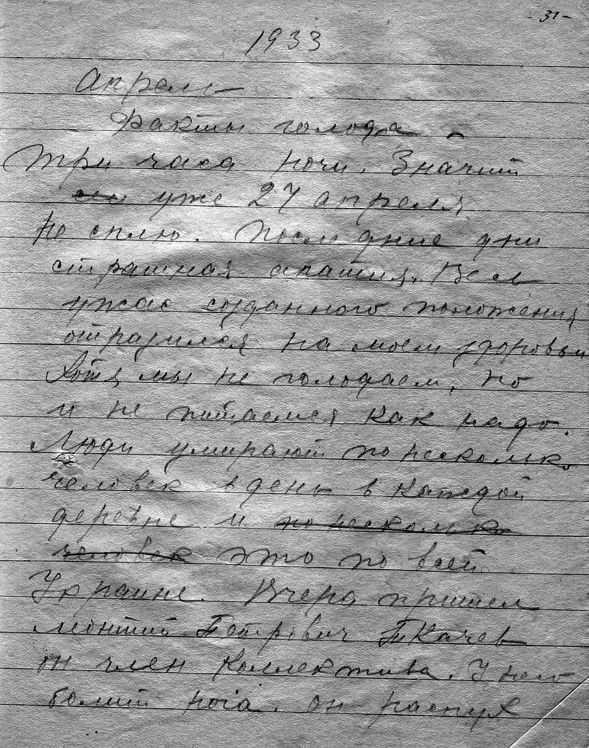 - 31 -
1933
Апрель
Факты голода
Три часа ночи. Значит
уже 27 апреля
Не сплю. Последние дни
страшная апатия. Весь
ужас созданного положения
отразился на моем здоровьи
Хотя мы не голодаем, но
и не питаемся как надо.
Люди умирают по несколько
человек в день в каждой
деревне и по несколько
человек это по всей
Украине. Вчера пришел
Леонтий Петрович Ткачев
он член коллектива. У него
болит нога. он распух